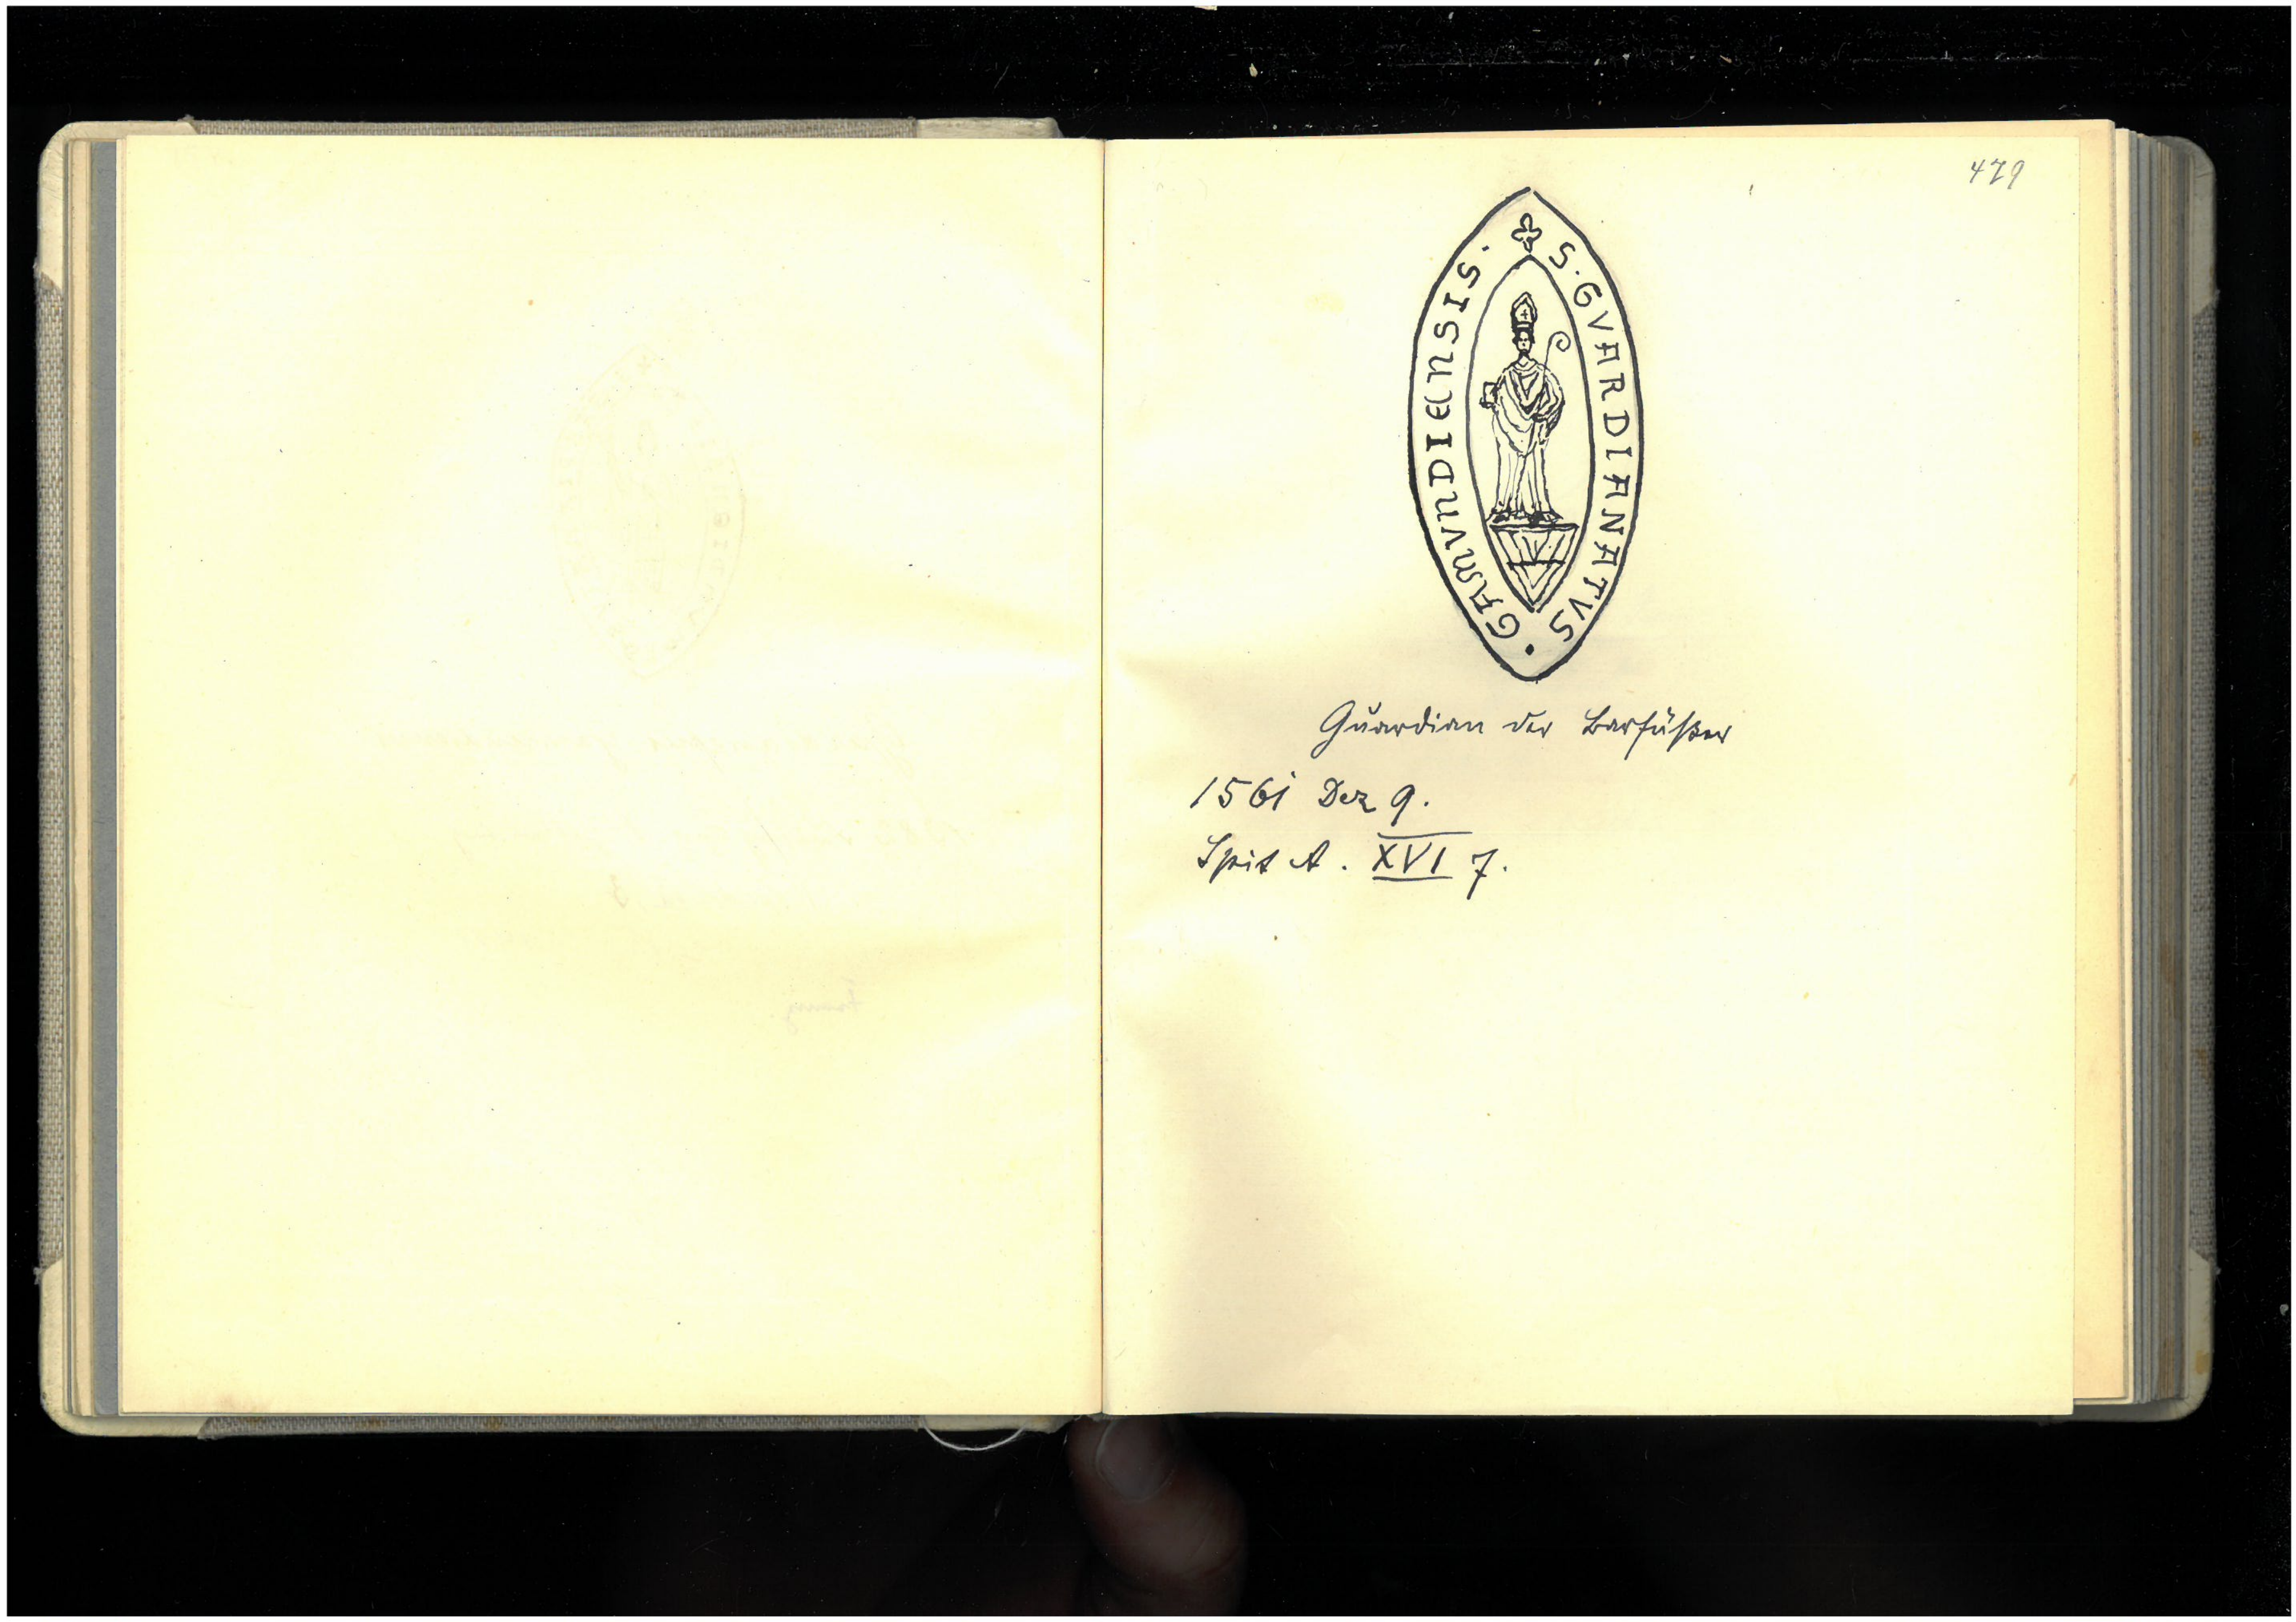 479
S · GVARDIANATVS · GAMVNDIENSIS ·
Guardian der Barfüßer
1561 Dez 9.
Spit A. XVI 7.